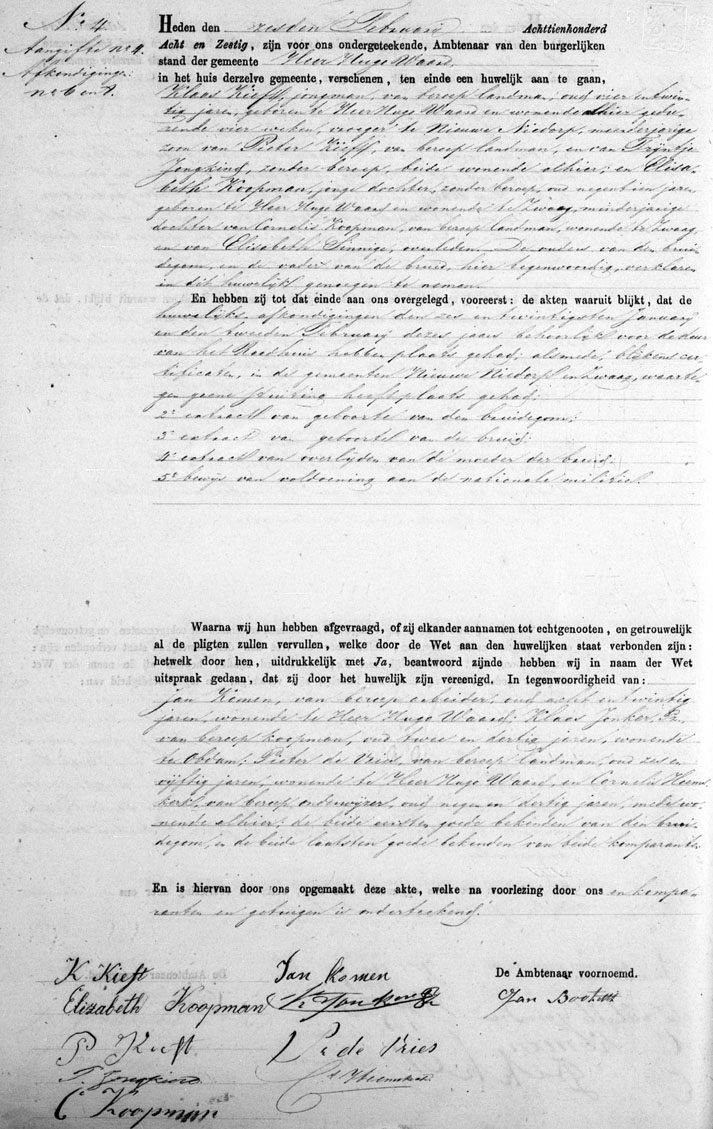 No 4.
Aangifte no 4.
Afkondiging:
no 6 en 7.
Heden den zesden Februarij Achttienhonderd
Acht en Zestig, zijn voor ons ondergeteekende, Ambtenaar van den burgerlijken
stand der gemeente Heer Hugo Waard
in het huis derzelve gemeente, verschenen, ten einde een huwelijk aan te gaan,
Klaas Kieft, jongman, van beroep landman, oud vier en twin-
tig jaren, geboren te Heer Hugo Waard en wonende alhier gedu-
rende vier weken, vroeger te Nieuwe Niedorp, meerderjarige
zoon van Pieter Kieft, van beroep landman, en van Trijntje
Jongkind, zonder beroep, beide wonende alhier; en Elisa-
beth Koopman, jonge dochter, zonder beroep, oud negentien jaren
geboren te Heer Hugo Waard en wonende te Zwaag, minderjarige
dochter van Cornelis Koopman, van beroep landman, wonende te Zwaag
en van Elisabeth Sinnige, overleden. De ouders van den brui-
degom, en de vader van de bruid, hier tegenwoordig, verklaren
in dit huwelijk genoegen te nemen.
En hebben zij tot dat einde aan ons overgelegd, vooreerst: de akten waaruit blijkt, dat de
huwelijks afkondigingen den zes en twintigsten Januarij
en den tweeden Februarij dezes jaars behoorlijk voor de deur
van het Raadhuis hebben plaats gehad; alsmede, blijkens cer-
tificaten, in de gemeenten Nieuwe Niedorp en Zwaag, waarte-
gen geene stuiting heeft plaats gehad;
2e extract van geboorte van den bruidegom;
3e extract van geboorte van de bruid;
4e extract van overlijden van de moeder der bruid;
5e bewijs van voldoening aan de nationale militie.
Waarna wij hun hebben afgevraagd, of zij elkander aannamen tot echtgenooten, en getrouwelijk
al de pligten zullen vervullen, welke door de Wet aan den huwelijken staat verbonden zijn:
hetwelk door hen, uitdrukkelijk met Ja, beantwoord zijnde hebben wij in naam der Wet
uitspraak gedaan, dat zij door het huwelijk zijn vereenigd. In tegenwoordigheid van:
Jan Komen, van beroep arbeider, oud acht en twintig
jaren, wonende te Heer Hugo Waard; Klaas Jonker Pz,
van beroep koopman, oud twee en dertig jaren, wonende
te Obdam; Pieter de Vries, van beroep landman, oud zes en
vijftig jaren, wonende te Heer Hugo Waard, en Cornelis Heems-
kerk, van beroep onderwijzer, oud negen en dertig jaren, mede wo-
nende alhier; de beide eersten goede bekenden van den brui-
degom, en de beide laatsten goede bekenden van beide komparanten
En is hiervan door ons opgemaakt deze akte, welke na voorlezing door ons en kompa-
ranten en getuigen is onderteekend.
K Kieft
Jan Komen
De Ambtenaar voornoemd.
Elizabeth Koopman
Kl Jonker Pz
Jan
P Kieft
P de Vries
T. Jongkind
C Heemskerk
C Koopman